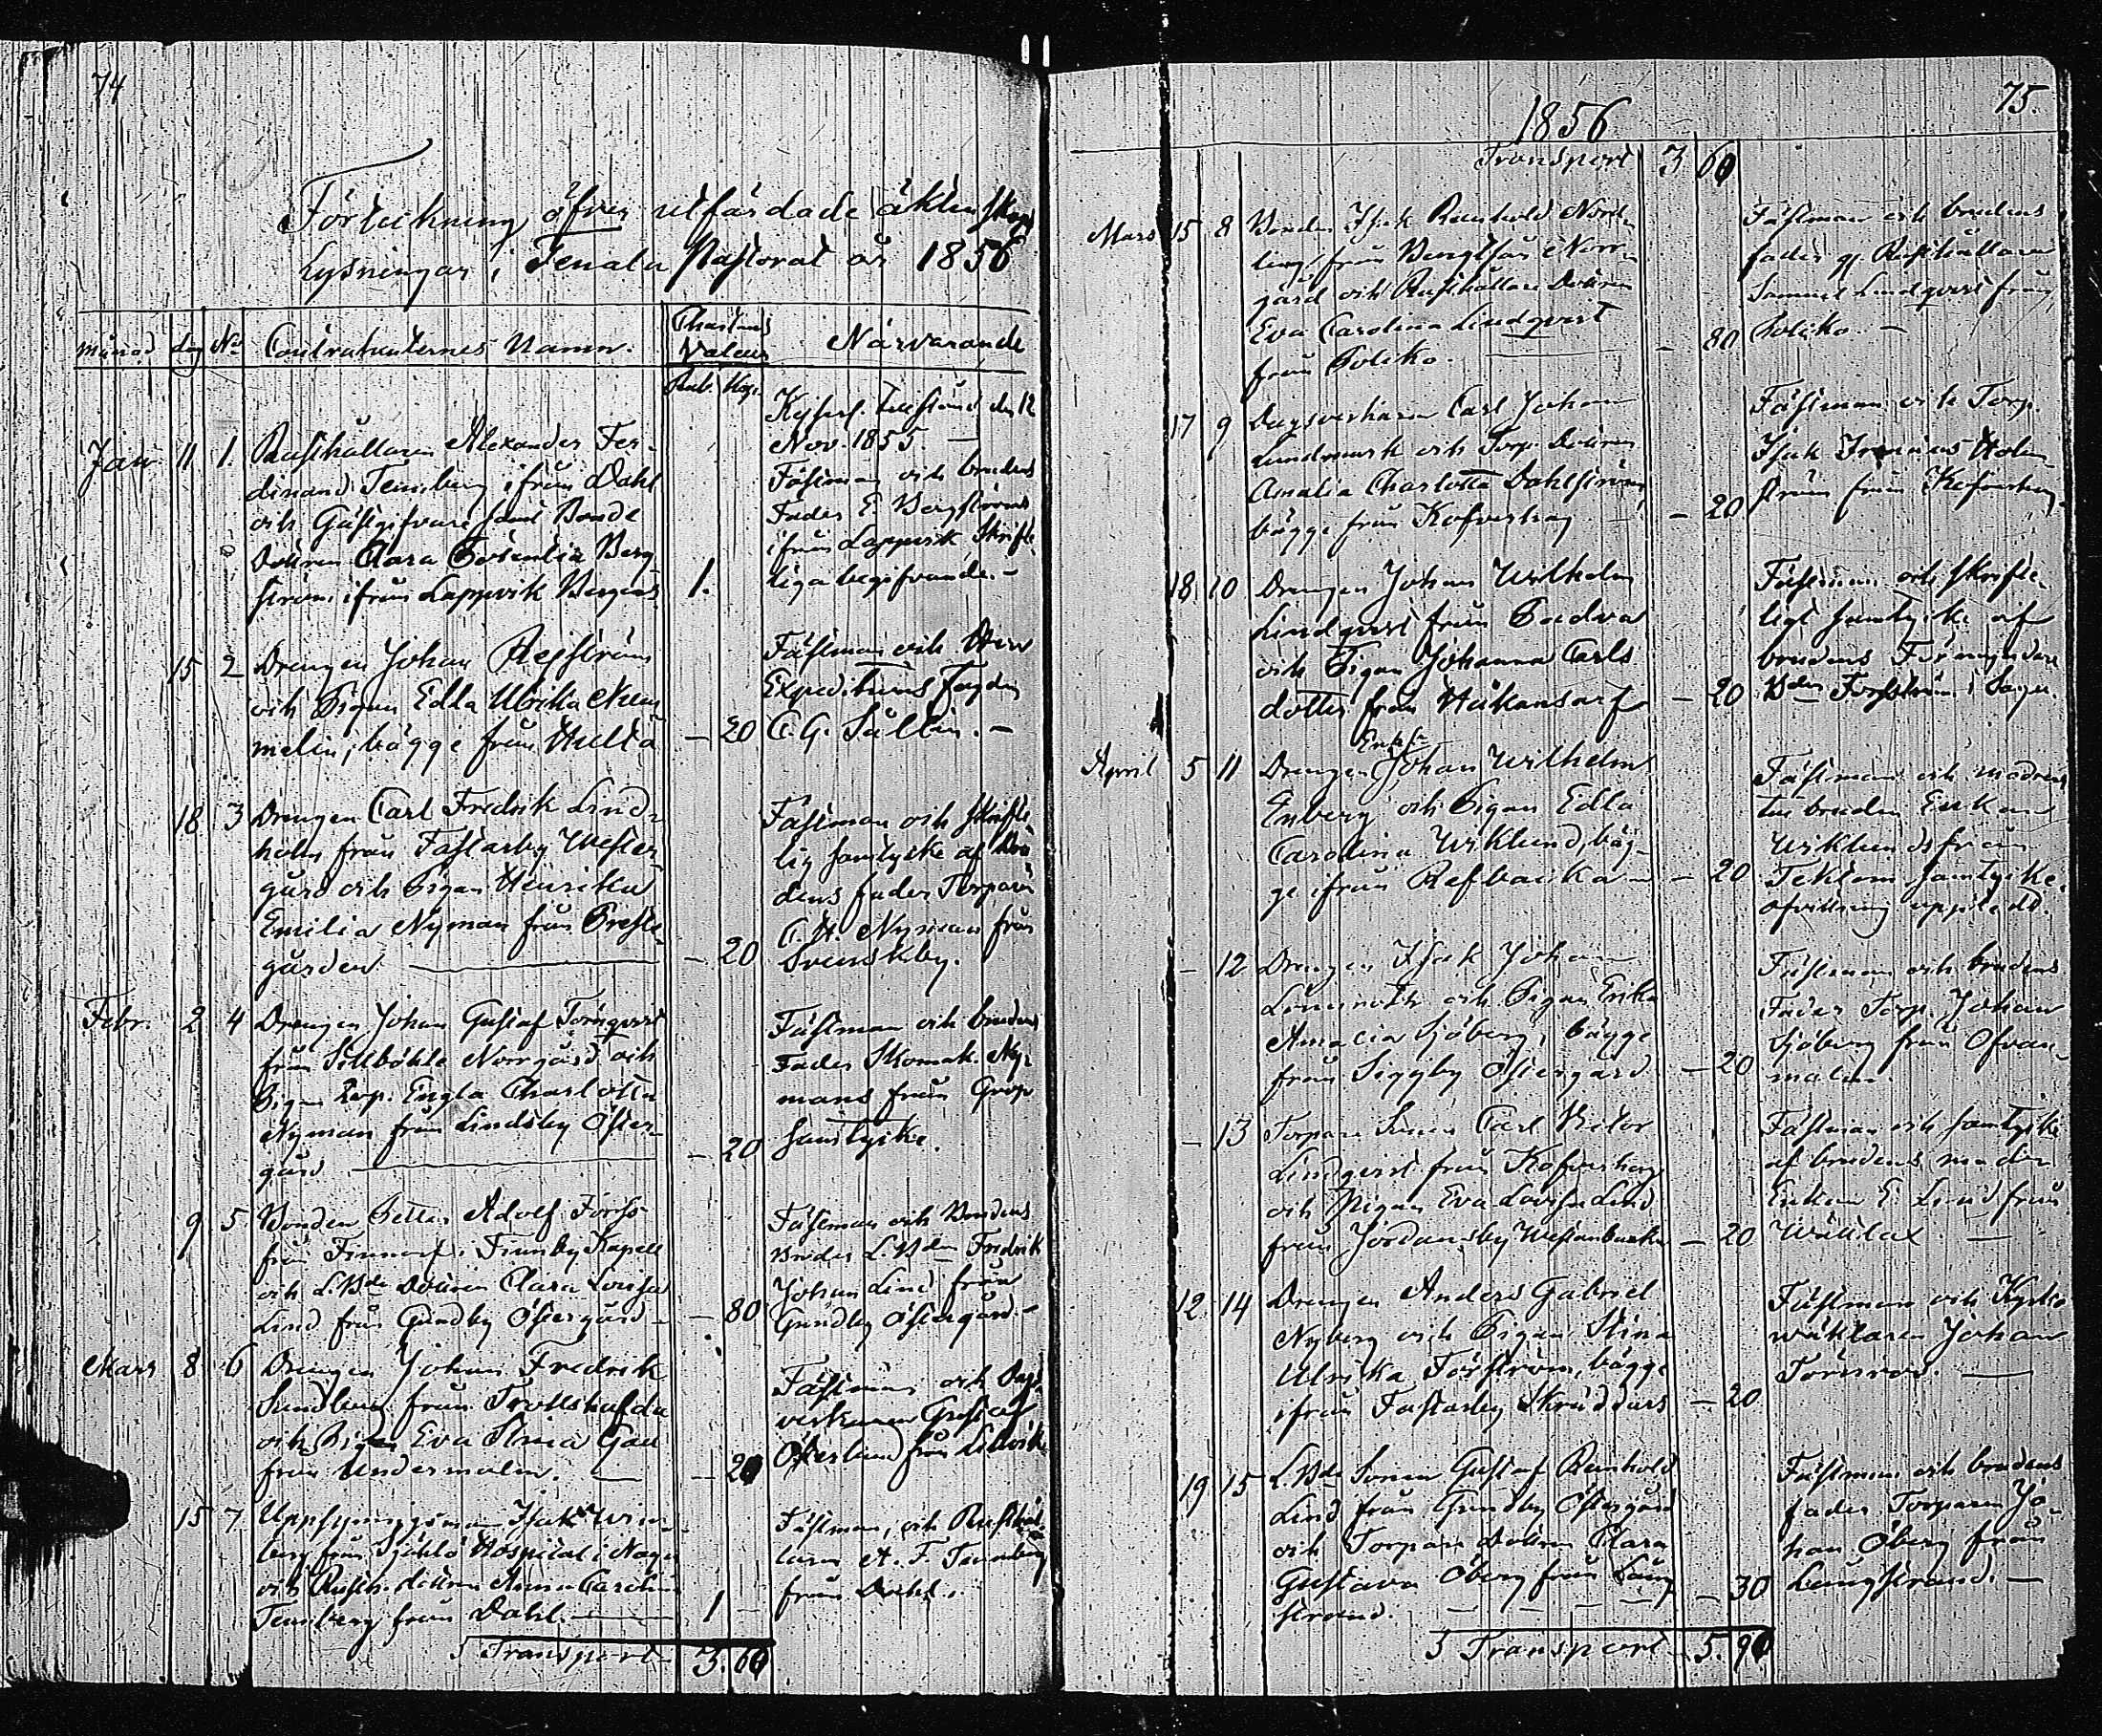 74
Förteckning öfver utfärdade äktenskaps
Lysningar i Tenala Pastorat år 1856
månad dag No Contrahenternes Namn. Chartae Valeur Närvarande
Rub. Kop.
Kejserl. den 12
Nov. 1855. —
Janr 11 1. Rusthållaren Alexander Fer-
dinand Tennberg ifrån Dahl
och Gästgifvare samt Bonde
Dottren Clara Bergström
ifrån Lappvik 1.
Fästman och brudens
Fader E. Bergströms
ifrån Lappvik Skrift-
liga begifvande. —
15 2 Drengen Johan
och Pigan Edla Ulrika Num-
melin, bägge från Hulta — 20
Fästman och Herr
Expeditions Fogden
C. G. Sållin. —
18 3 Drengen Carl Fredrik Lind-
holm från Fastarby Wester-
gård och Pigan Henrika
Emilia Nyman från Preste-
gården — 20
Fästman och skrifte-
lig samtycke af Bru-
dens fader Torparn
C. H. Nyman från
Svenskby.
Febr. 2 4 Drengen Johan Gustaf Törnqvist
från Sillböhle Norrgård och
Pigan Engla Charlotta
Nyman från Lindsby Öster-
gård — 20
Fästman och brudens
Fader Skomak. Ny-
mans från Grop
samtycke.
9 5 Bonden Petter Adolf Forss
från Finnarf i Finnby Kapell
och L.Bde Dottren Clara Lovisa
Lind från Gundby Östergård — 80
Fästman och Brudens
Broder L.Bden Fredrik
Johan Lind från
Gundby Östergård. —
Mars 8 6 Drengen Johan Fredrik
Sundberg från Trollshofda
och Pigan Eva Stina
från Undermalm. — 20
Fästman och Dags-
verkaren Gustaf
Österlund från Lillvik
15 7 Uppsyningsman Isak Win-
berg från Sjählö Hospital i Nagu
och Rusth. dottren Anna Carolina
Tennberg från Dahl. — 1 —
Fästman, och Rusthål-
laren A. F. Tennberg
från Dahl.
Transport 3. 60
75.
1856
Transport 3 60
Mars 15 8 Bonden Isak Reinhold Nord-
ling från Bengtsår Norr-
gård och Rusthållare Dottren
Eva Carolina Lindqvist
från Bolsko. — 80
Fästman och brudens
fader gf. Rusthållaren
Samuel Lindqvist från
Bolsko. —
17 9 Dagsverkaren Carl Johan
Lundmark och Torp. Dottren
Amalia Charlotta Dahlström,
bägge från Kofverhag — 20
Fästman och Torp.
Isak Holm-
ström från Kofverhag.
18 10 Drengen Johan Wilhelm
Lindqvist från Badva
och Pigan Johanna Carls
dotter från Håkansarf — 20
Fästman och skrifte-
ligt samtycke af
brudens Förmyndare
Bden Forsström i
April 5 11 Drengen Enkl. Johan Wilhelm
Enberg och Pigan Edla
Carolina Wiklund, bäg-
ge ifrån Refbacka — 20
Fästman och modren
till bruden Enkan
Wiklund ifrån
Tektom samtycke
— 12 Drengen Isak Johan
Lönnroth och Pigan Erika
Amalia Sjöberg, bägge
från Siggby Östergård — 20
Fästman och brudens
Fader Torp. Johan
Sjöberg från Ofvan-
malm.
— 13 Torpare Sonen Carl Victor
Lindqvist från Kofverhag
och Pigan Eva Lovisa Lind
från Jordansby Westanbacka — 20
Fästman och samtycke
af brudens moder
Enkan E. Lind från
—
12 14 Drengen Anders Gabriel
Nyberg och Pigan Stina
Ulrika Forsström, bägge
ifrån Fastarby Skräddars — 20
Fästman och Kyrko-
wäktaren Johan
Törnroos. —
19 15 L.Bde Sonen Gustaf Reinhold
Lind från Gundby Östergård
och Torpare Dottren Clara
Gustava Öberg från Lång-
strand. — 30
Fästman och brudens
fader Torparen Jo-
han Öberg från
Långstrand. —
Transport 5. 90